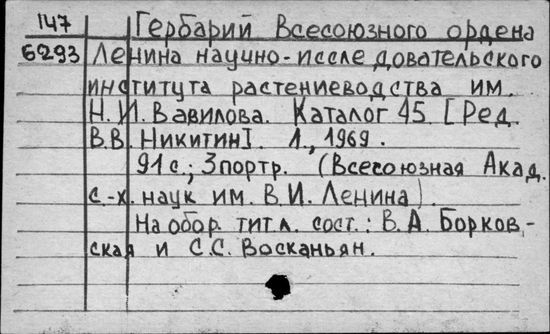 147 Гербарий Всесоюзного ордена
6293 Ленина научно-исследовательского
института растениеводства им.
Н.И. Вавилова. Каталог 45 [Ред.
В.В. Никитин]. Л., 1969.
91 с.; 3 портр. (Всесоюзная Акад.
с.-х. наук им. В.И. Ленина).
На обор. тит. л. сост.: В.А. Борков-
ская и С.С. Восканьян.